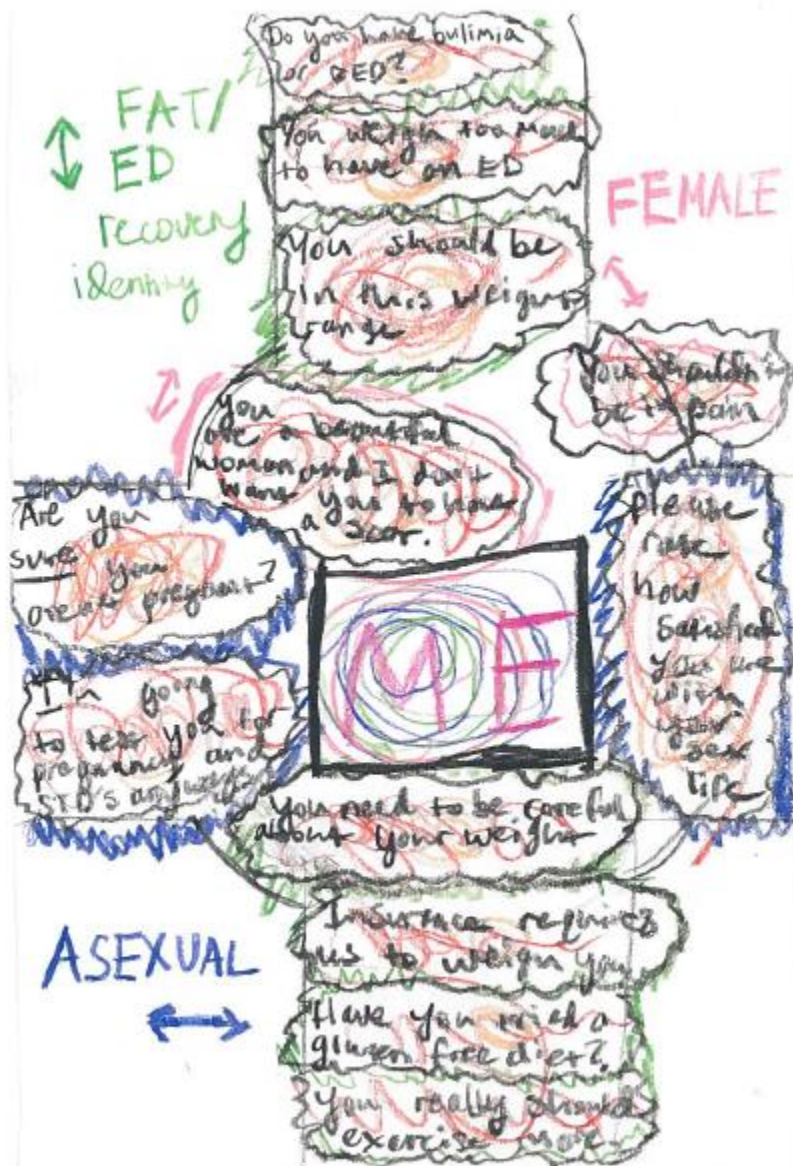 Do you have bulimia
or BED?
You weigh too much
to have an ED
You should be
in this weight
range
FAT/
ED
recovery
identity
FEMALE
You shouldn't
be in pain
You
are a beautiful
woman and I don't
want you to have
a scar.
Are you
sure you
aren't pregnant?
I'm going
to test you for
pregnancy and
STD's anyways
ME
please
rate
how
satisfied
you are
with
your
sex
life
You need to be careful
about your weight
ASEXUAL
Insurance requires
us to weigh you
Have you tried a
gluten free diet?
You really should
exercise more.